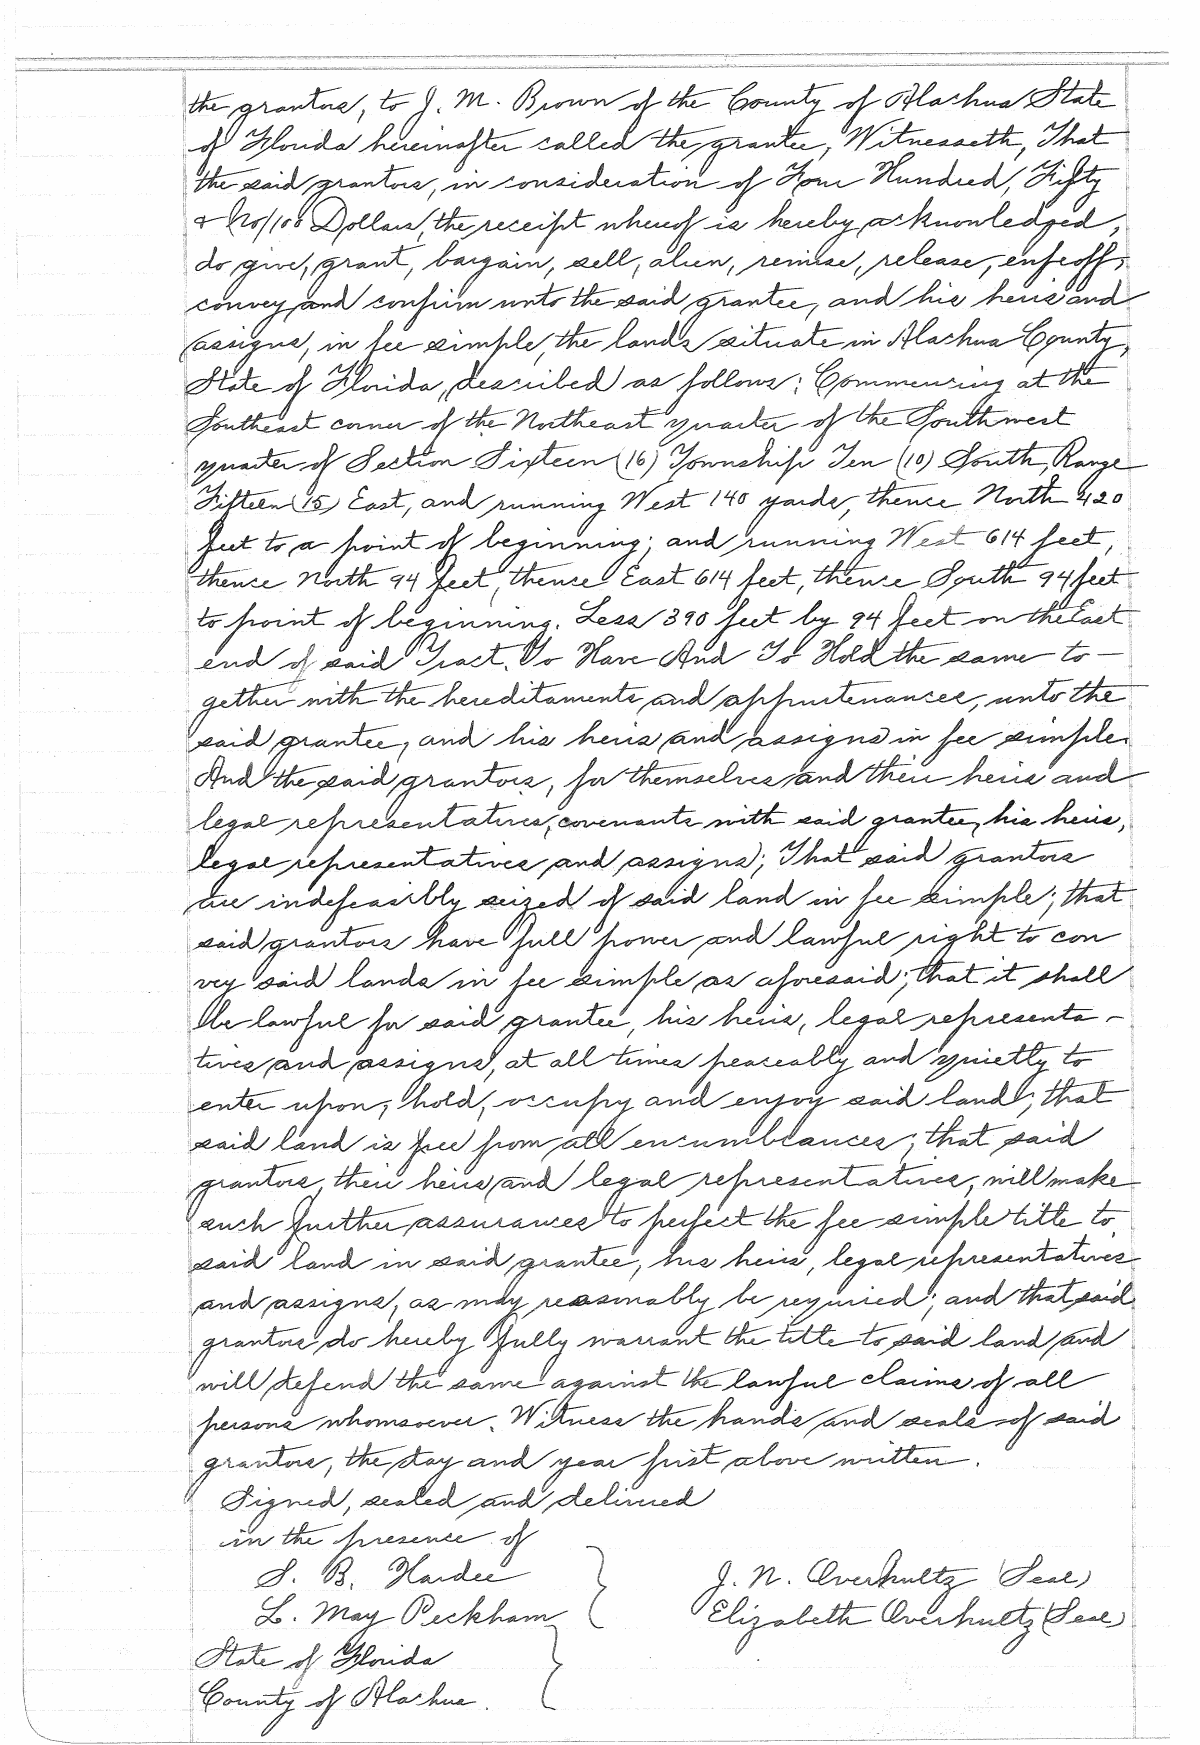 the grantors, to J. M. Brown of the County of Alachua State
of Florida hereinafter called the grantee, Witnesseth, That
the said grantors, in consideration of Four Hundred, Fifty
& No/100 Dollars, the receipt whereof is hereby acknowledged,
do give, grant, bargain, sell, alien, remise, release, enfeoff,
convey and confirm unto the said grantee, and his heirs and
assigns, in fee simple, the lands situate in Alachua County,
State of Florida, described as follows: Commencing at the
Southeast corner of the Northeast quarter of the Southwest
quarter of Section Sixteen (16) Township Ten (10) South, Range
Fifteen (15) East, and running West 140 yards, thence North 420
feet to a point of beginning; and running West 614 feet,
thence North 94 feet, thence East 614 feet, thence South 94 feet
to point of beginning. Less 390 feet by 94 feet on the East
end of said Tract. To Have And To Hold the same to-
gether with the hereditaments and appurtenances, unto the
said grantee, and his heirs and assigns in fee simple.
And the said grantors, for themselves and their heirs and
legal representatives, covenants with said grantee, his heirs,
legal representatives and assigns; That said grantors
are indefeasibly seized of said land in fee simple; that
said grantors have full power and lawful right to con
vey said lands in fee simple as aforesaid; that it shall
be lawful for said grantee, his heirs, legal representa-
tives and assigns, at all times peaceably and quietly to
enter upon, hold, occupy and enjoy said land; that
said land is free from all encumbrances; that said
grantors, their heirs and legal representatives, will make
such further assurances to perfect the fee simple title to
said land in said grantee, his heirs, legal representatives
and assigns, as may reasonably be required; and that said
grantors do hereby fully warrant the title to said land and
will defend the same against the lawful claims of all
persons whomsoever. Witness the hands and seals of said
grantors, the day and year first above written.
Signed, sealed and delivered
in the presence of
S. B. Hardee
J. N. Overhultz (Seal)
L. May Peckham
Elizabeth Overhultz (Seal)
State of Florida
County of Alachua.